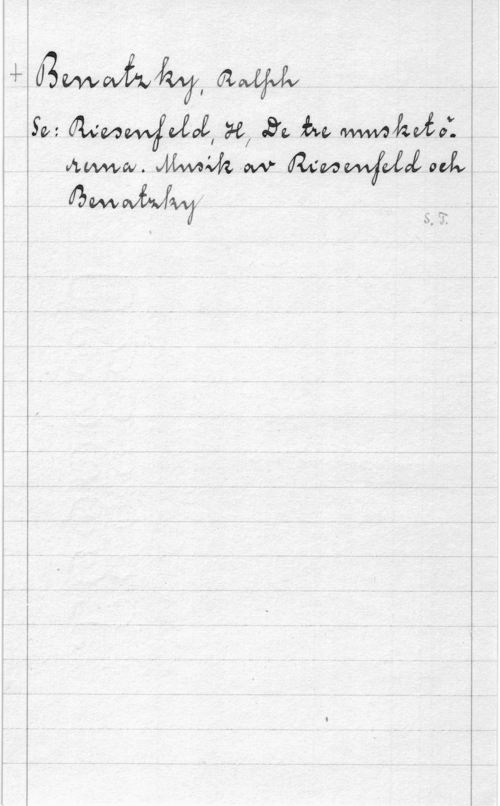 + Benatzky, Ralph
Se: Riesenfeld, H, De tre musketö-
rerna. Musik av Riesenfeld och
Benatzky
S. T.